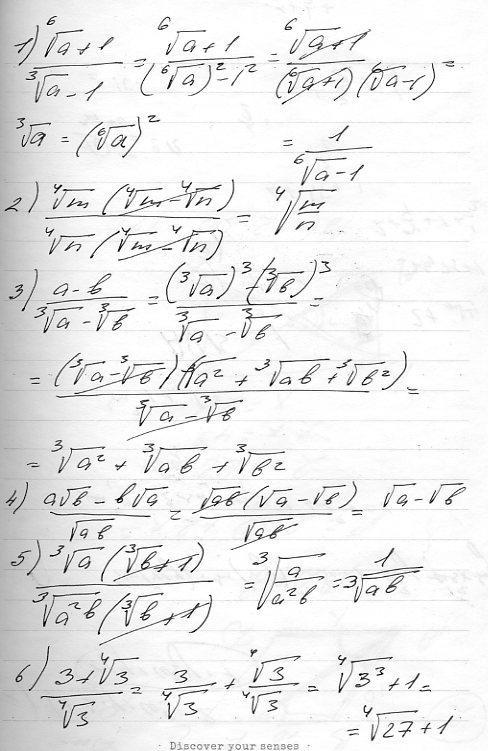 1) (⁶√a + 1)/(³√a - 1) = (⁶√a + 1)/((⁶√a)² - 1²) = (⁶√a + 1)/((⁶√a + 1)(⁶√a - 1)) =
³√a = (⁶√a)² = 1/(⁶√a - 1)
2) (⁴√m (⁴√m - ⁴√n))/(⁴√n (⁴√m - ⁴√n)) = ⁴√(m/n)
3) (a - b)/(³√a - ³√b) = ((³√a)³ - (³√b)³)/(³√a - ³√b) =
= ((³√a - ³√b)(³√a² + ³√ab + ³√b²))/(³√a - ³√b) =
= ³√a² + ³√ab + ³√b²
4) (a√b - b√a)/√ab = (√ab (√a - √b))/√ab = √a - √b
5) (³√a (³√b + 1))/(³√a²b (³√b + 1)) = ³√(a/a²b) = 1/³√ab
6) (3 + ⁴√3)/⁴√3 = 3/⁴√3 + ⁴√3/⁴√3 = ⁴√3³ + 1 =
= ⁴√27 + 1
· Discover your senses ·